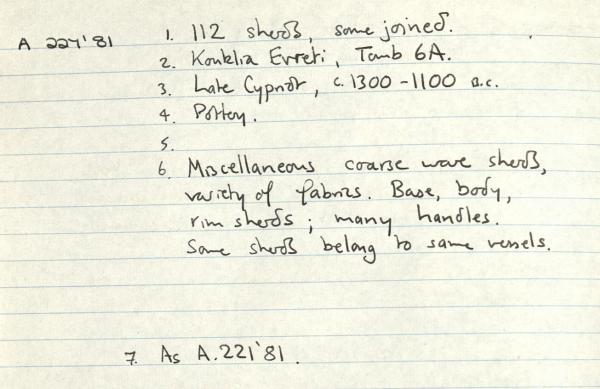 A 227'81 1. 112 sherds, some joined.
2. Kouklia Evreti, Tomb 6A.
3. Late Cypriot, c. 1300-1100 B.C.
4. Pottery.
5.
6. Miscellaneous coarse ware sherds,
variety of fabrics. Base, body,
rim sherds; many handles.
Some sherds belong to same vessels.
7. As A.221'81.